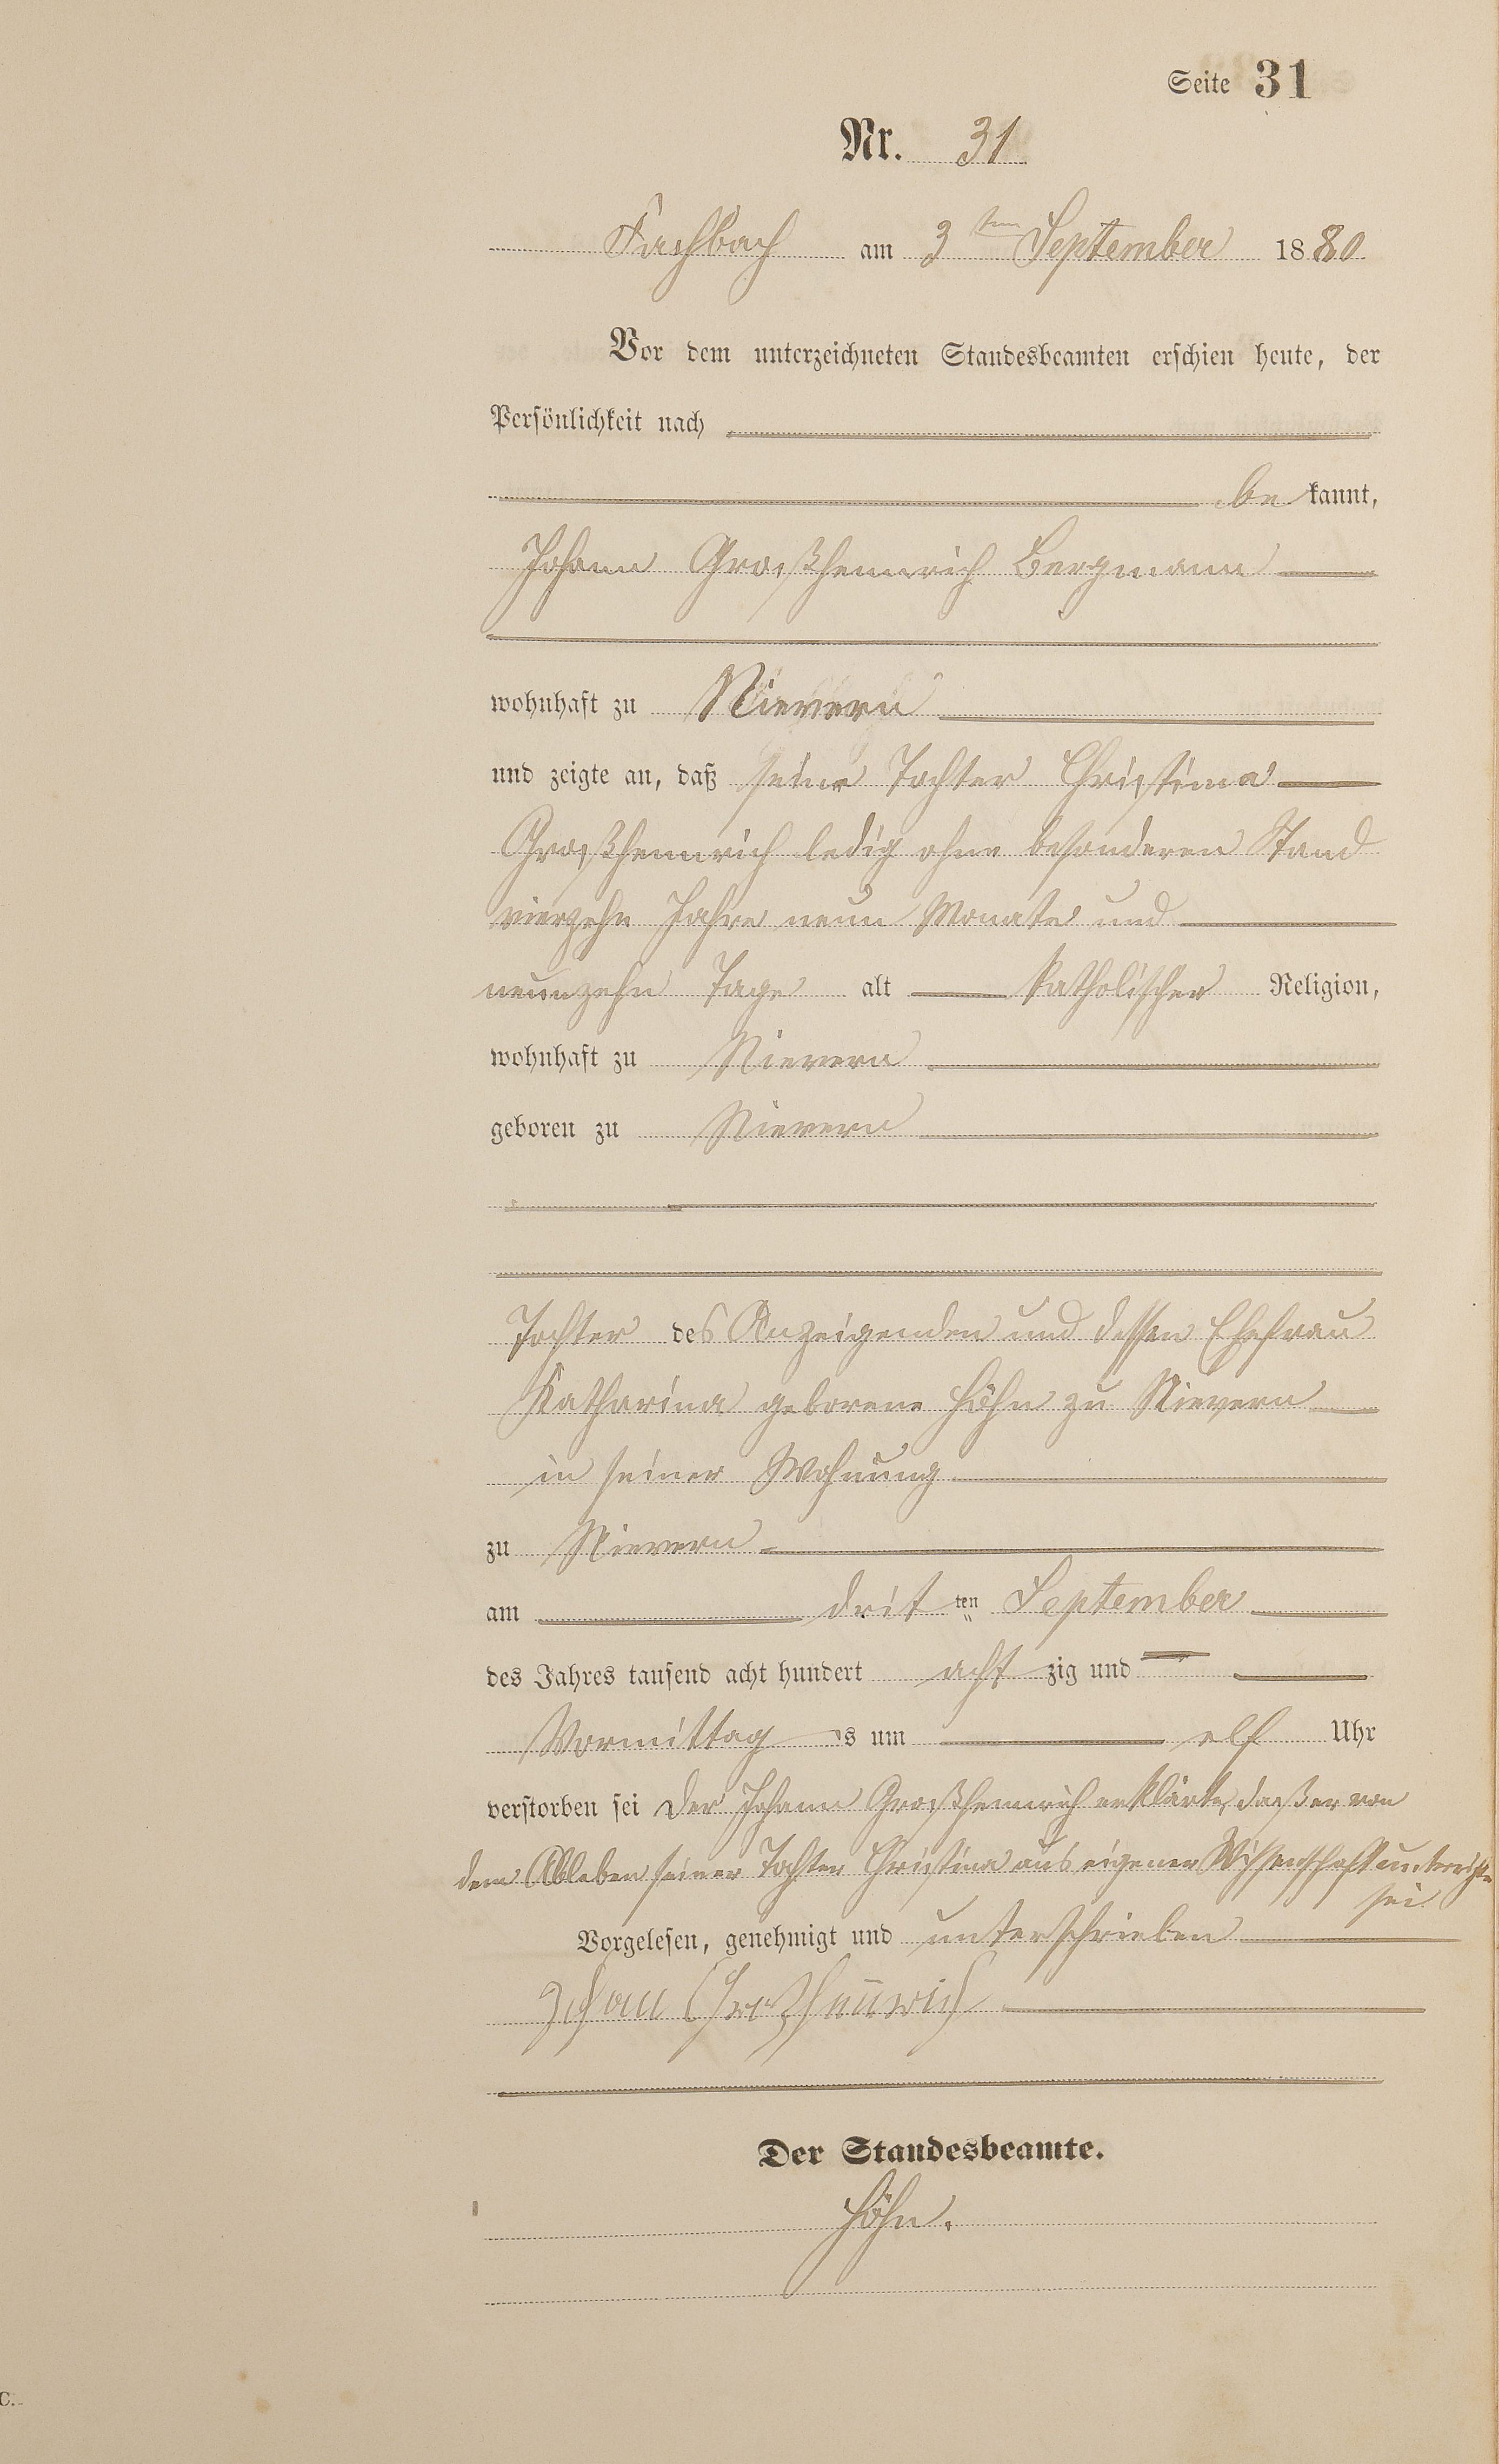 Seite 31
Nr. 31
Fachbach am 3ten September 1880
Vor dem unterzeichneten Standesbeamten erschien heute, der
Persönlichkeit nach
be kannt,
Johann Großhennrich Bergmann
wohnhaft zu Nievern
und zeigte an, daß seine Tochter Christina
Großhennrich ledig ohne besonderen Stand
vierzehn Jahre neun Monate und
neunzehn Tage alt katholischer Religion,
wohnhaft zu Nievern
geboren zu Nievern
Tochter des Anzeigenden und dessen Ehefrau
Katharina geborene Höhn zu Nievern
in seiner Wohnung
zu Nievern
am dritten September
des Jahres tausend acht hundert acht zig und
Vormittag s um elf Uhr
verstorben sei der Johann Großhennrich erklärte, daß er von
dem Ableben seiner Tochter Christina aus eigener Wissenschaft unterrichtet
sei
Vorgelesen, genehmigt und unterschrieben
Johann Großhennrich
Der Standesbeamte.
Höhn.
C.